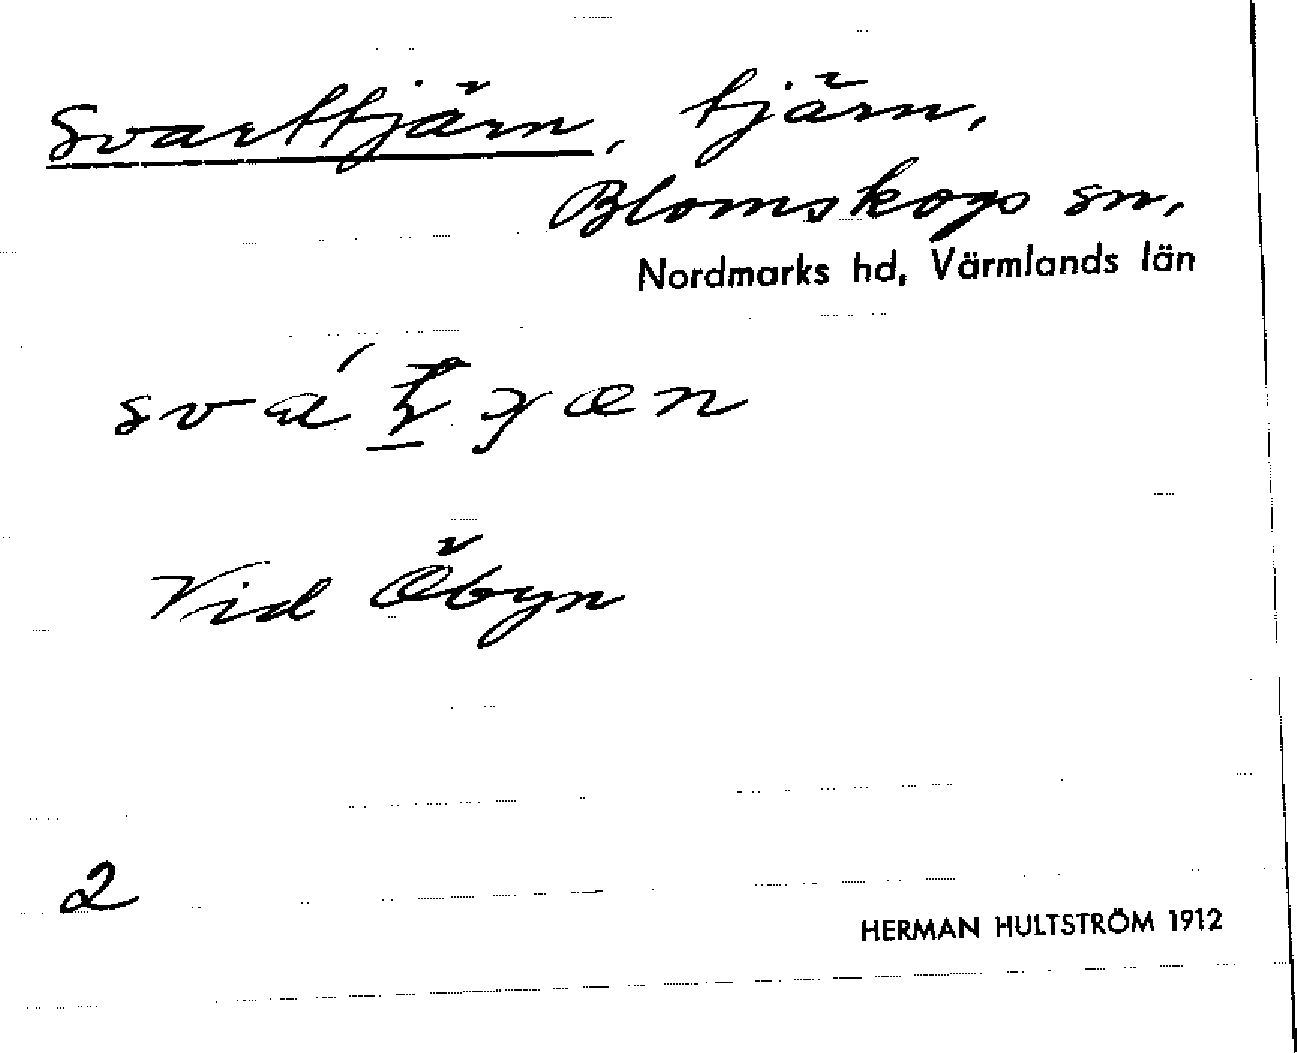 Svarttjärn, tjärn,
Blomskogs sn,
Nordmarks hd, Värmlands län
Vid Öbyn
2
HERMAN HULTSTRÖM 1912